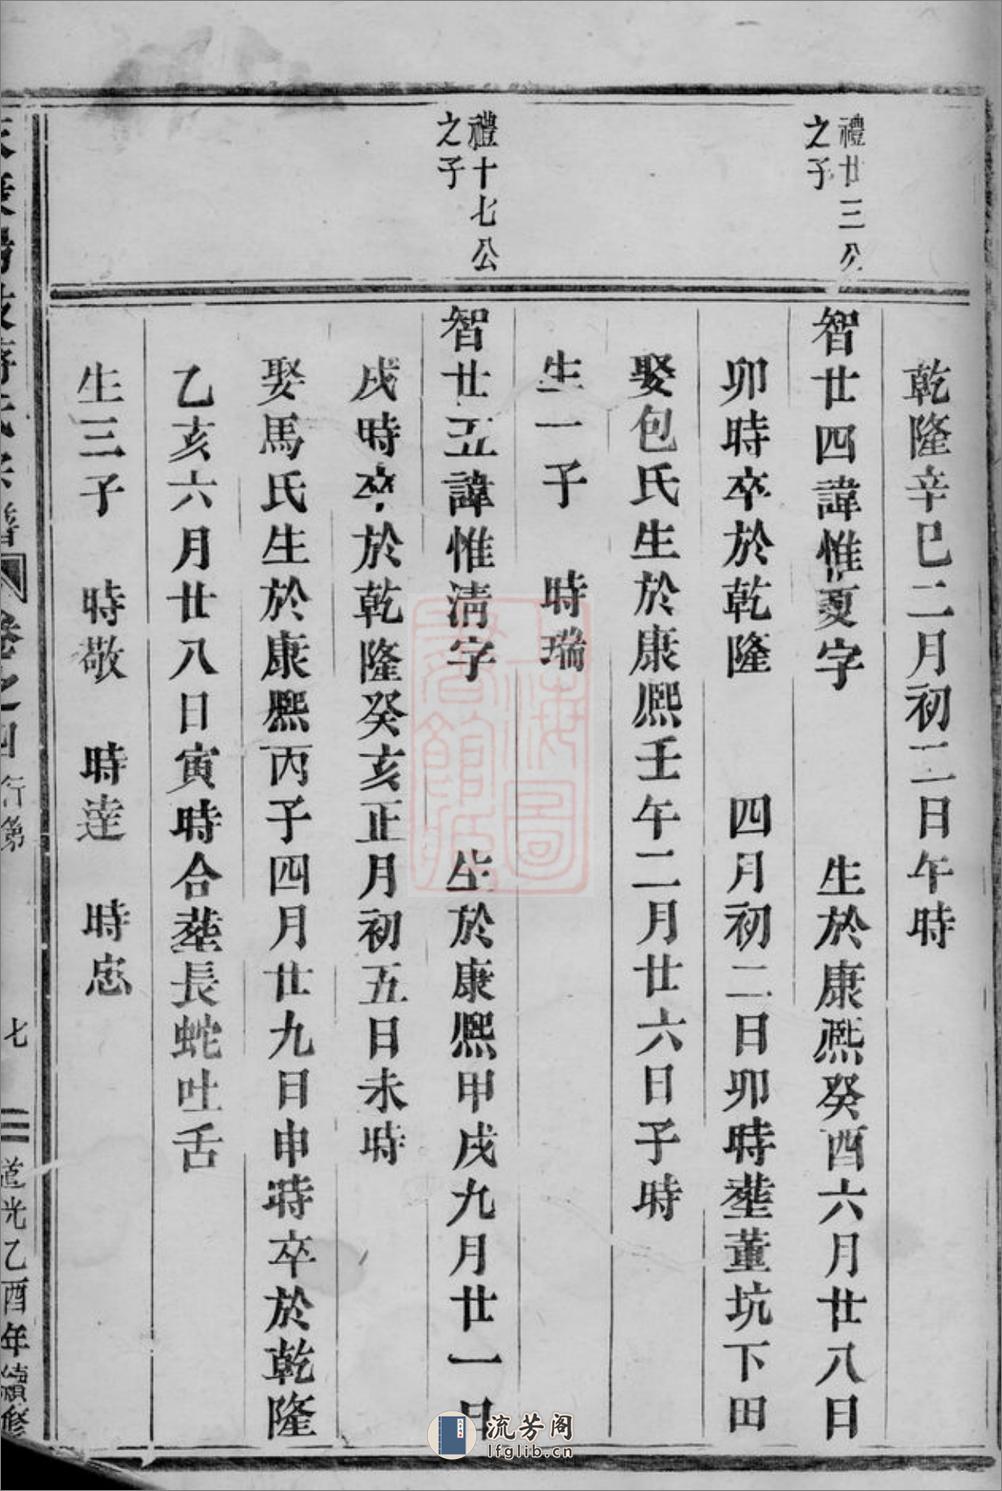 乾隆辛巳二月初二日午時
禮廿三公
之子
智廿四諱惟夏字 生於康熙癸酉六月廿八日
卯時卒於乾隆 四月初二日卯時塟董坑下田
娶包氏生於康熙壬午二月廿六日子時
生一子 時瑞
禮十七公
之子
智廿五諱惟清字 生於康熙甲戌九月廿一日
戌時卒於乾隆癸亥正月初五日未時
娶馬氏生於康熙丙子四月廿九日申時卒於乾隆
乙亥六月廿八日寅時合塟長蛇吐舌
生三子 時敬 時達 時忠
氏宗譜 卷之四 行第 七 道光乙酉年續修
上海圖書館藏
流芳阁
lfglib.cn